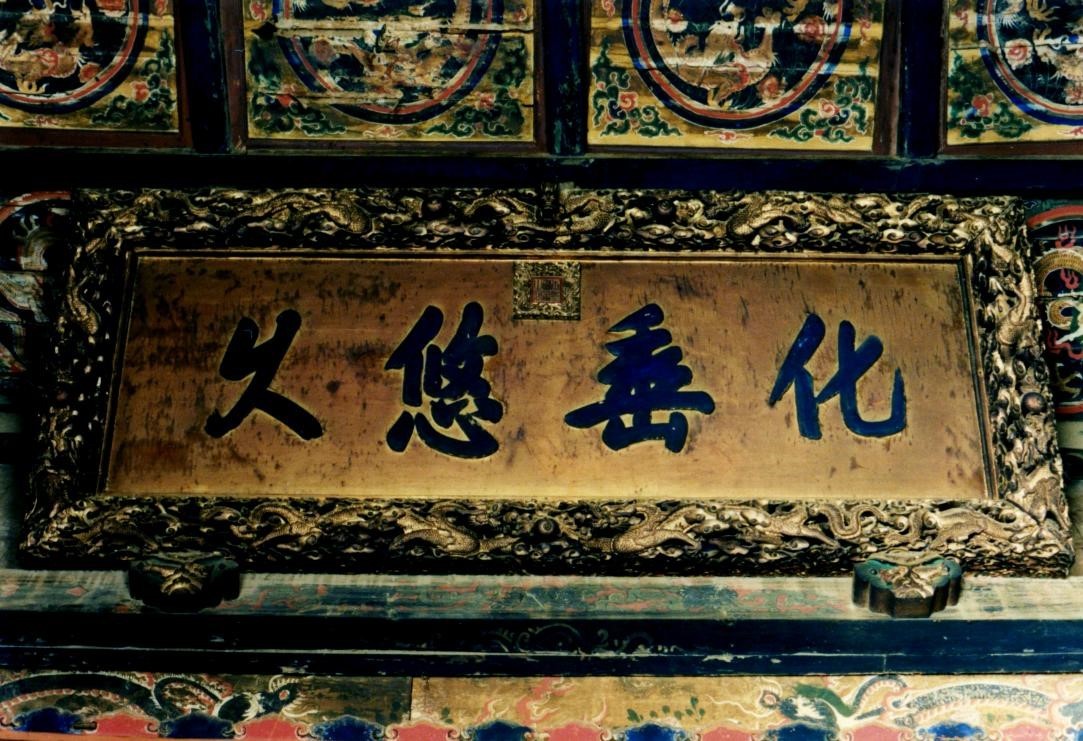 化垂悠久